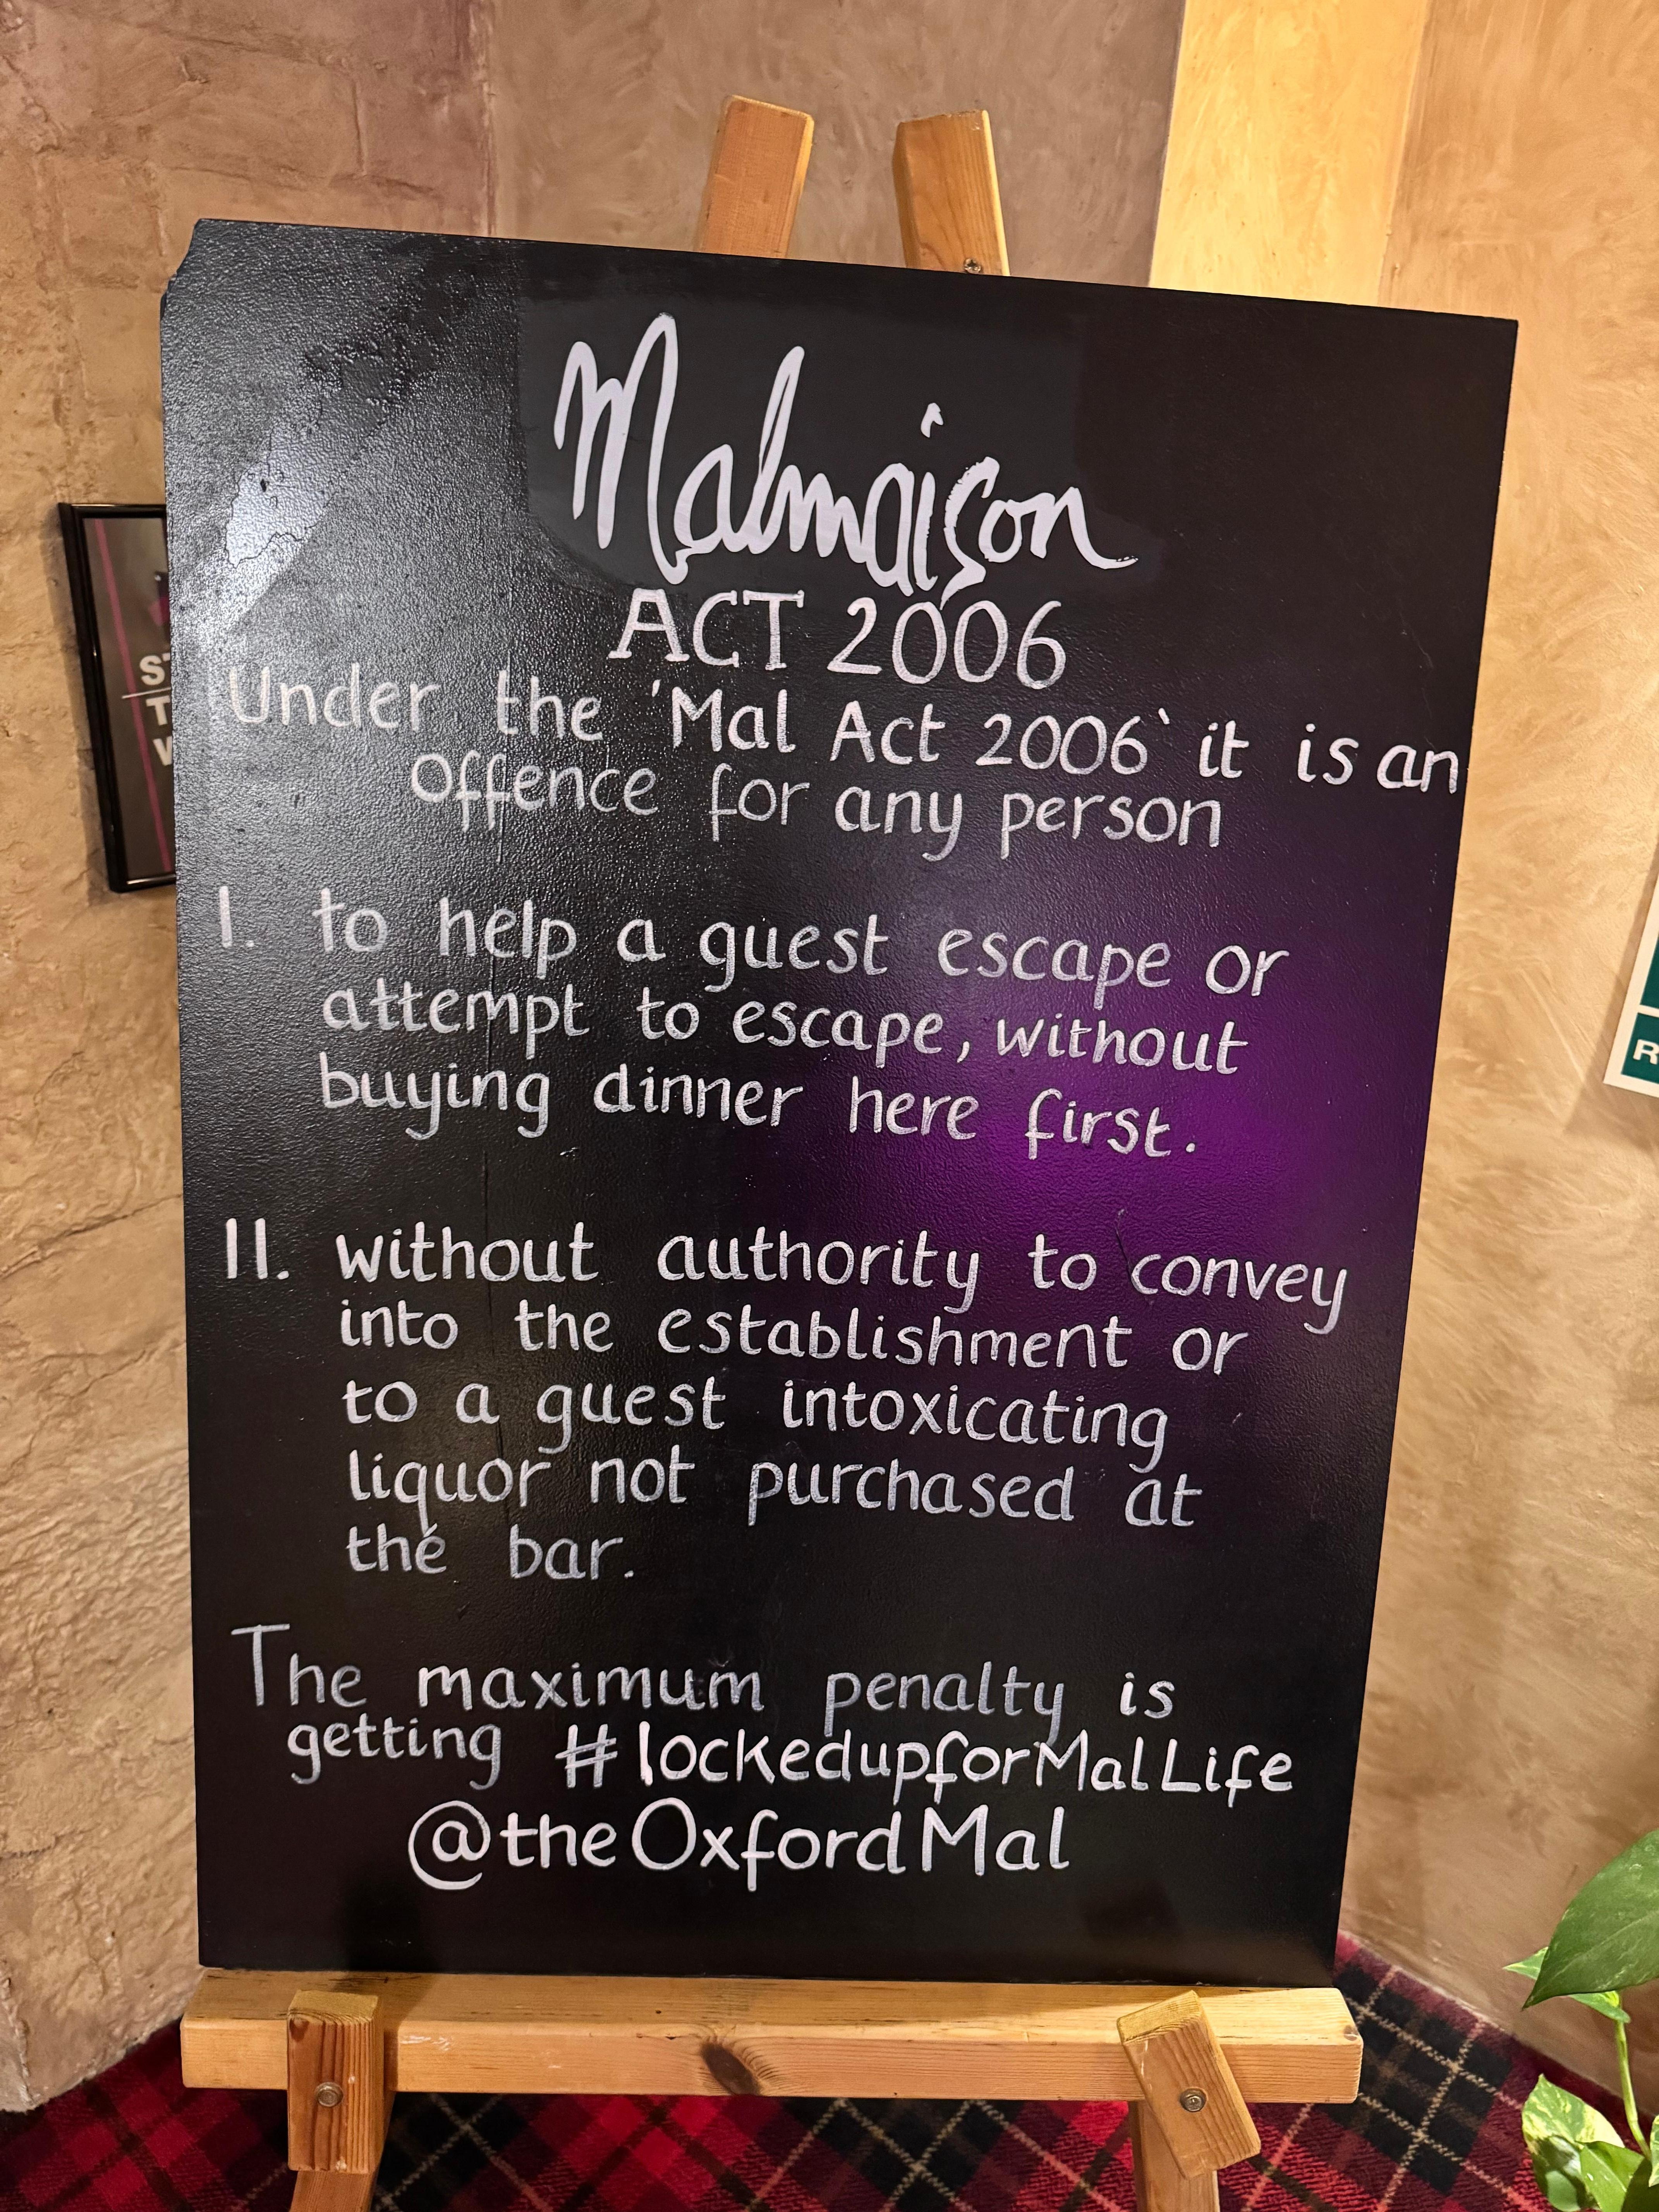 Malmaison
ACT 2006
Under the 'Mal Act 2006` it is an
offence for any person
I. to help a guest escape or
attempt to escape, without
buying dinner here first.
II. without authority to convey
into the establishment or
to a guest intoxicating
liquor not purchased at
the bar.
The maximum penalty is
getting #lockedupforMalLife
@theOxfordMal